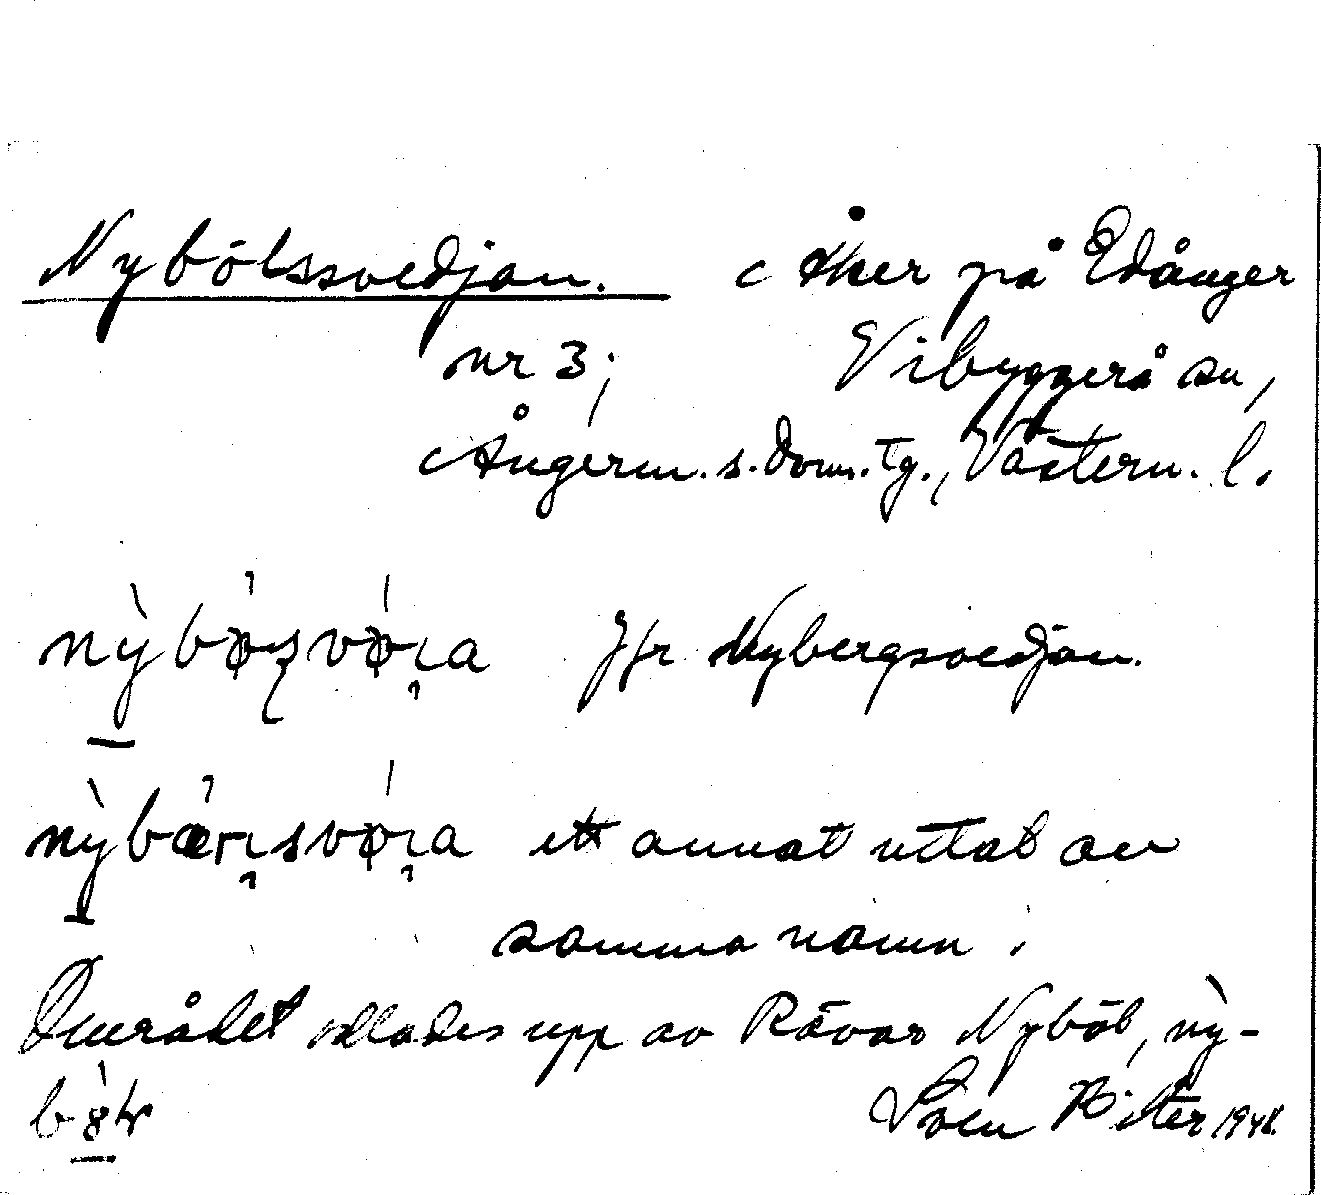 Nybölssvedjan. Åker på Edånger
nr 3; Vibyggerå sn,
Ångerm. s. dom. tg., Västern. l.
Jfr Nybergsvedjan.
ett annat uttal av
samma namn.
Området odlades upp av Rävar Nyböl, ny-
Sven Rüter 1948.